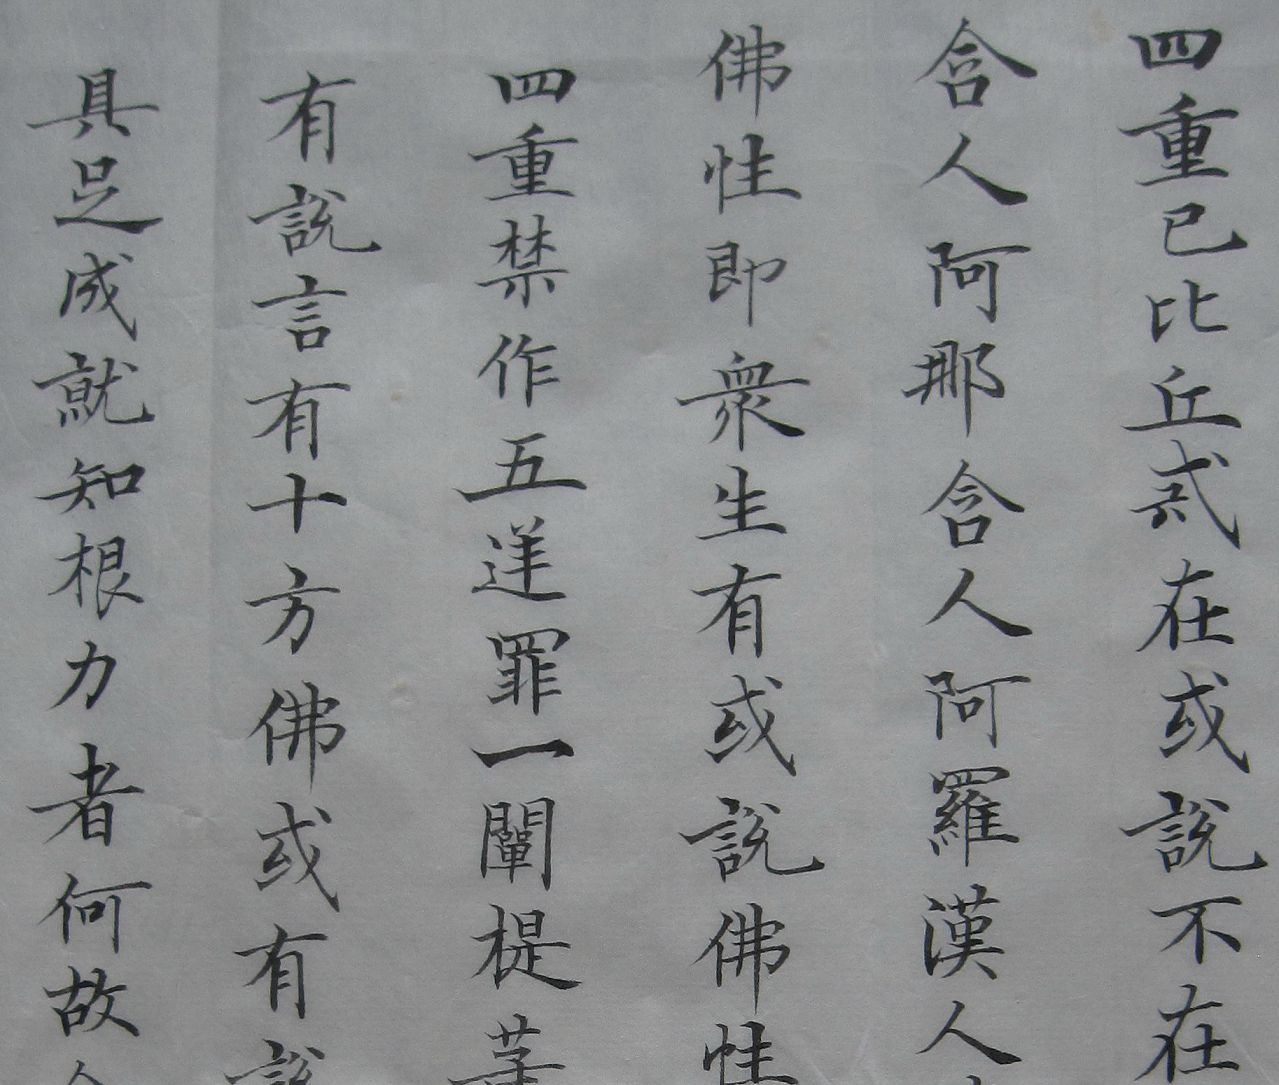 四重已比丘貳在或說不在
含人阿那含人阿羅漢人
佛性即衆生有或說佛性
四重禁作五逆罪一闡提
有說言有十方佛或有說
具足成就知根力者何故